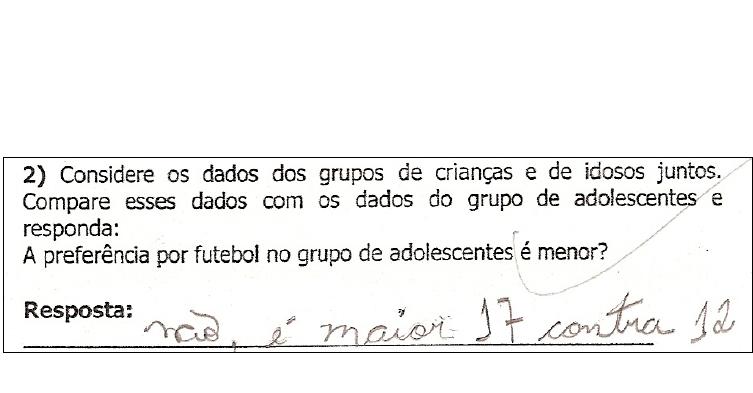 2) Considere os dados dos grupos de crianças e de idosos juntos.
Compare esses dados com os dados do grupo de adolescentes e
responda:
A preferência por futebol no grupo de adolescentes é menor?
Resposta: não, é maior 17 contra 12